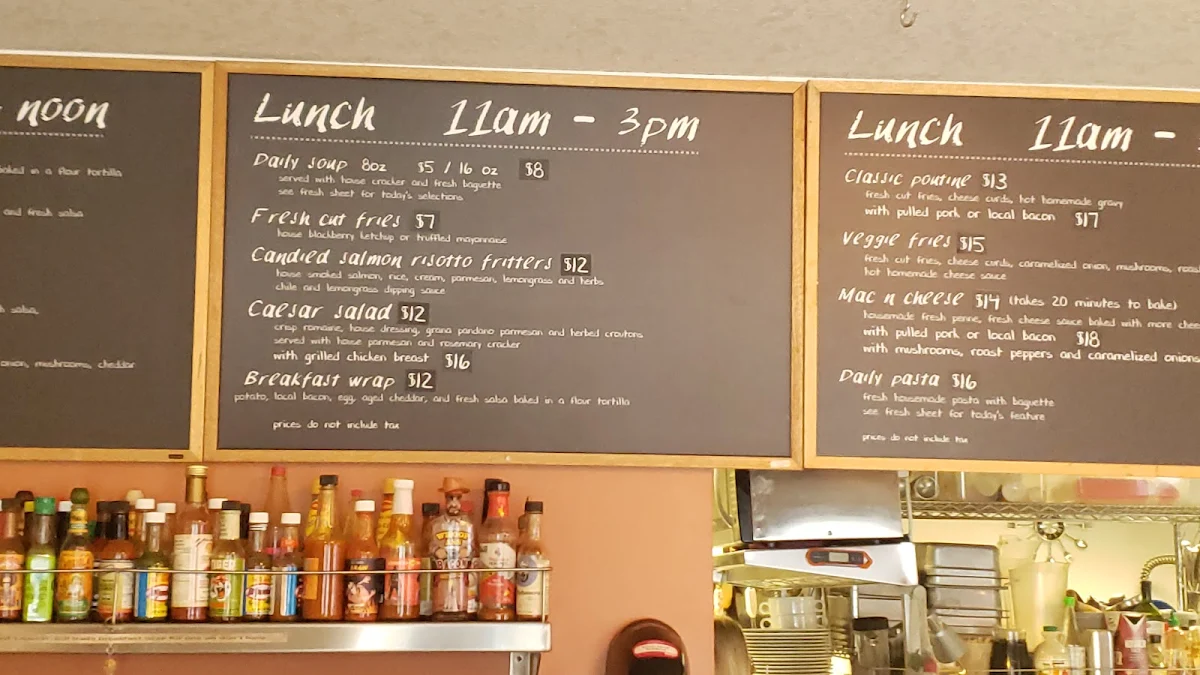 noon
baked in a flour tortilla
and fresh salsa
salsa,
onion, mushrooms, cheddar
Lunch 11am - 3pm
Daily soup 8oz $5 / 16 oz $8
served with house cracker and fresh baguette
see fresh sheet for today's selections
Fresh cut fries $7
house blackberry ketchup or truffled mayonnaise
Candied salmon risotto fritters $12
house smoked salmon, rice, cream, parmesan, lemongrass and herbs
chile and lemongrass dipping sauce
Caesar salad $12
crisp romaine, house dressing, grana pandano parmesan and herbed croutons
served with house parmesan and rosemary cracker
with grilled chicken breast $16
Breakfast wrap $12
potato, local bacon, egg, aged cheddar, and fresh salsa baked in a flour tortilla
prices do not include tax
Lunch 11am -
Classic poutine $13
fresh cut fries, cheese curds, hot homemade gravy
with pulled pork or local bacon $17
Veggie fries $15
fresh cut fries, cheese curds, caramelized onion, mushrooms,
hot homemade cheese sauce
Mac n cheese $14 (takes 20 minutes to bake)
housemade fresh penne, fresh cheese sauce baked with more
with pulled pork or local bacon $18
with mushrooms, roast peppers and caramelized onions
Daily pasta $16
fresh housemade pasta with baguette
see fresh sheet for today's feature
prices do not include tax